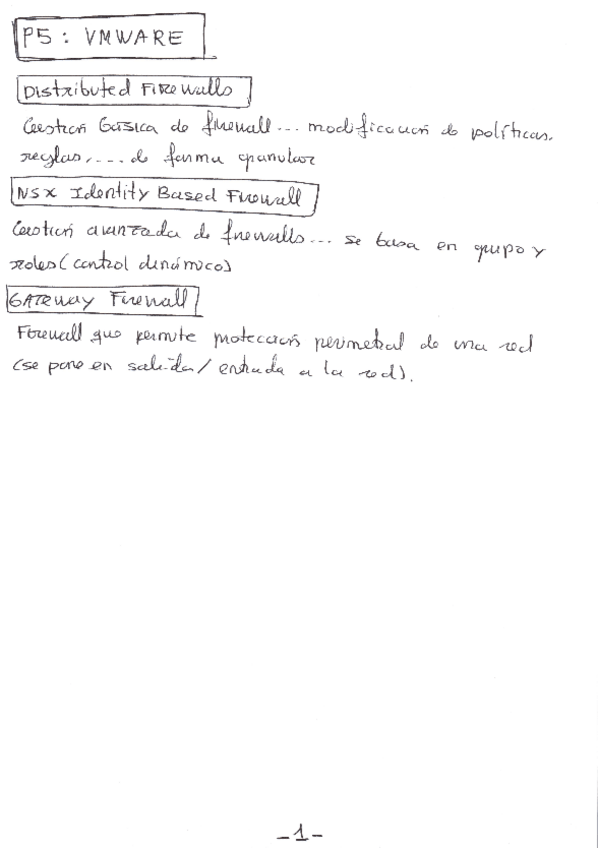 P5: VMWARE
Distributed Firewalls
Gestión básica de firewall... modificación de políticas.
reglas,.... de forma granular
NSX Identity Based Firewall
Gestión avanzada de firewalls... se basa en grupo y
roles (control dinámico)
GATEWAY Firewall
Firewall que permite protección perimetral de una red
(se pone en salida/entrada a la red).
-1-